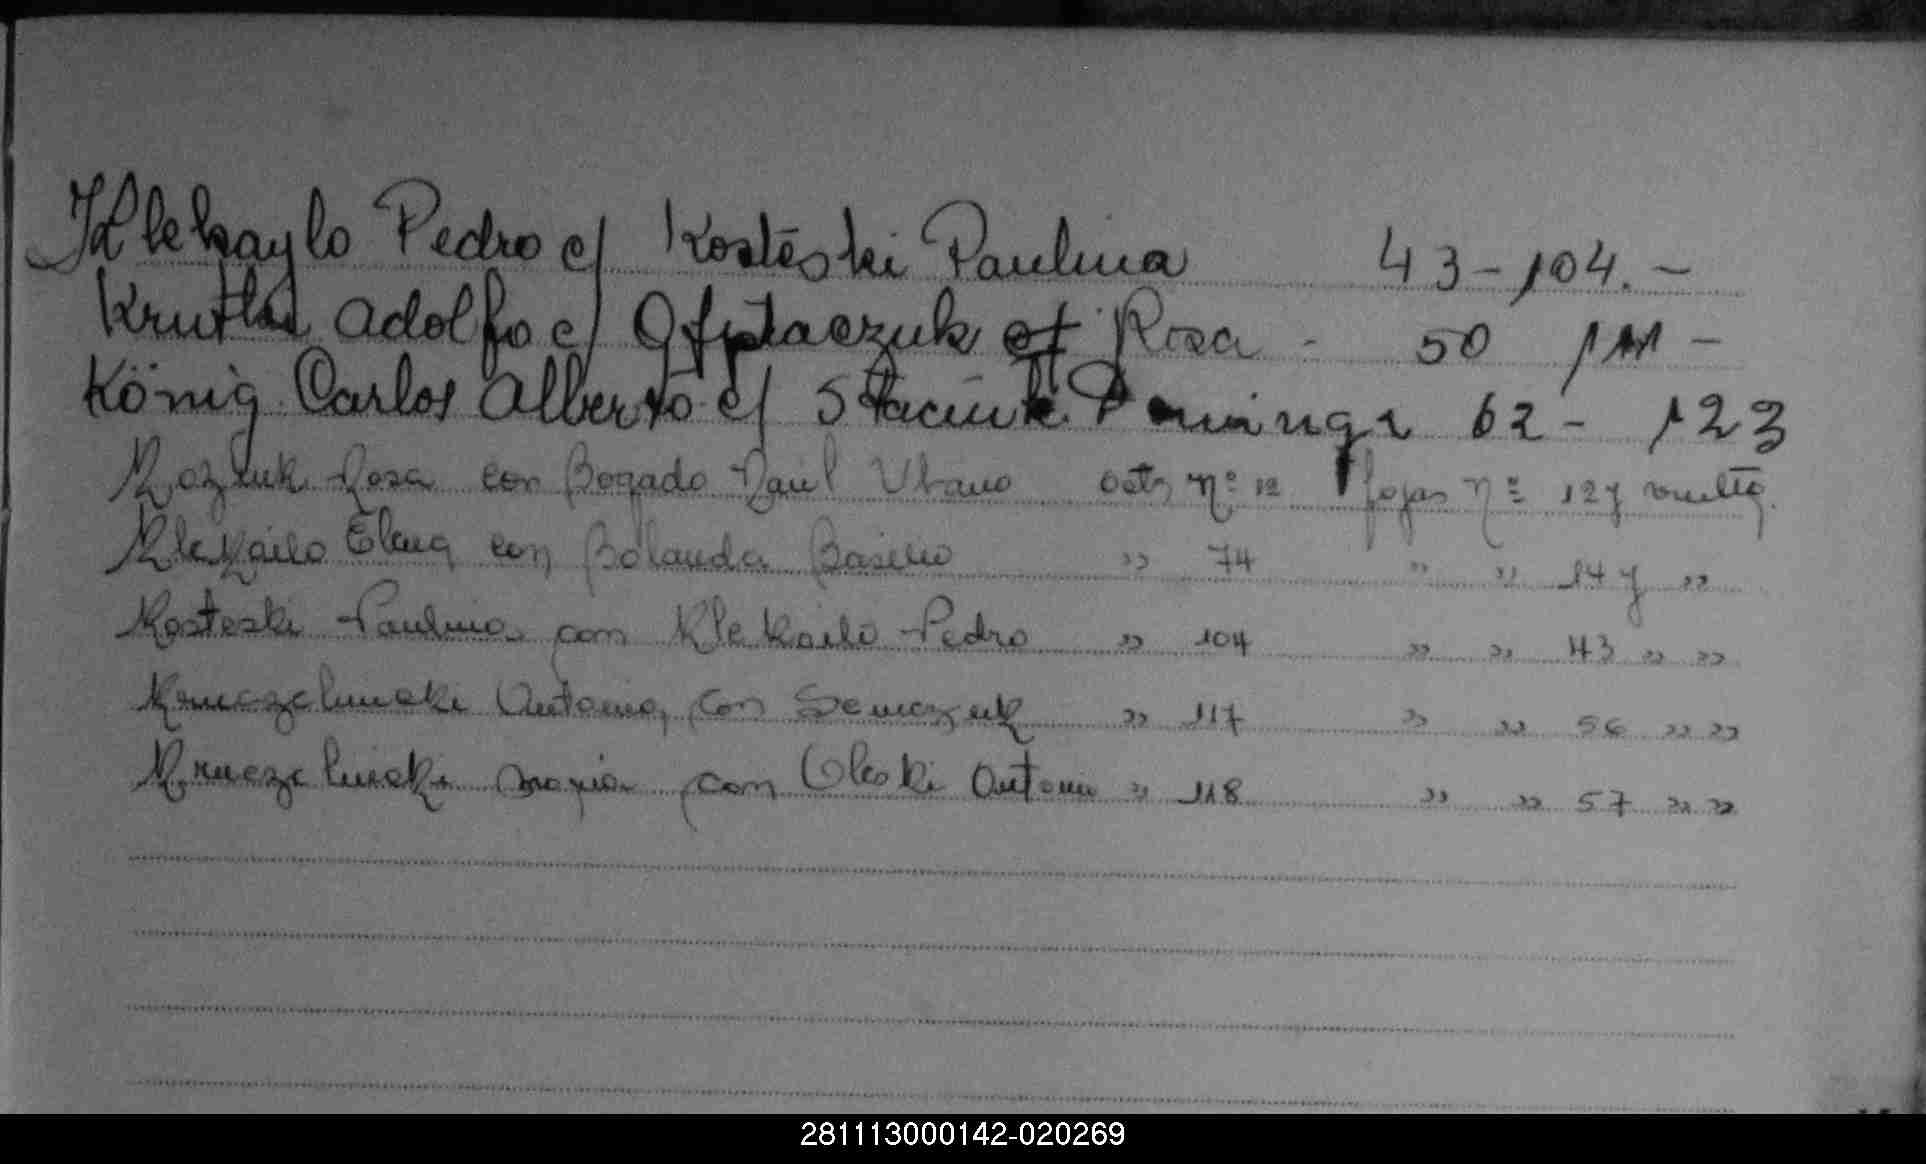 Klekaylo Pedro c/ Kosteski Paulina 43 - 104. -
Adolfo c/ Rosa - 50 111 -
König Carlos Alberto c/ Staciuk Dominga 62 - 123
Kozluk Rosa con Bogado Raúl Acta Nº 12 fojas Nº 127 vuelta
Klekailo Elena con Basilio " 74 " " 147 "
Kosteski Paulina con Klekailo Pedro " 104 " " 43 " "
Antonia, con Semczuk " 117 " " 56 " "
Maria con Oleski Antonio " 118 " " 57 " "
281113000142-020269